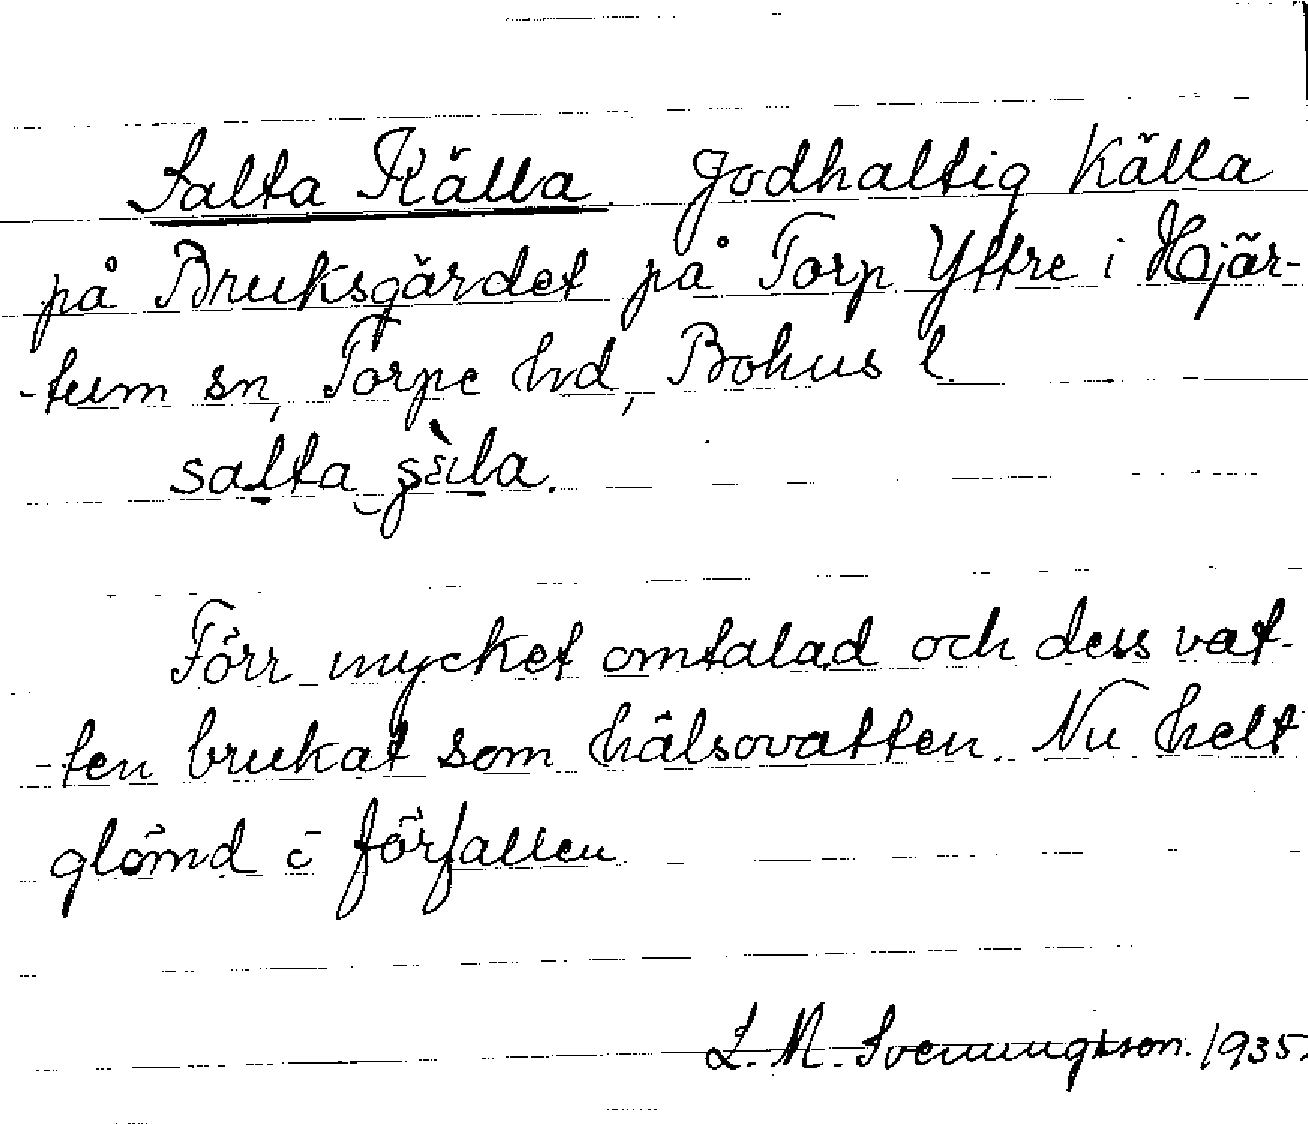 Salta Källa. Jodhaltig Källa
på Bruksgärdet på Torp Yttre i Hjär-
-tum sn, Torpe hd, Bohus l.
salta
Förr mycket omtalad och dess vat-
-ten brukat som hälsovatten. Nu helt
glömd o förfallen.
L. M. Svenungsson. 1935.